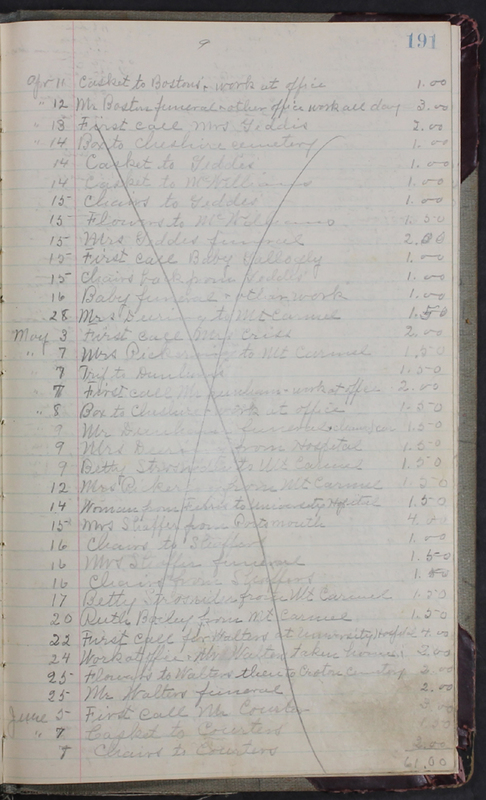 9
191
Apr 11 Casket to Bostons + work at office 1.00
" 12 Mr Boston funeral + other office work all day 3.00
" 13 First call Mrs Geddis 2.00
" 14 Box to Cheshire cemetery 1.00
14 Casket to Geddis 1.00
14 Casket to McWilliams 1.00
15 Chairs to Geddes 1.00
15 Flowers to McWilliams 1.50
15 Mrs Geddes funeral 2.00
15 First call Baby 1.00
15 Chairs back from 1.00
16 Baby funeral + other work 1.00
28 Mrs to Mt Carmel 1.50
May 3 First call Mrs Criss 2.00
" 7 Mrs Pickering to Mt Carmel 1.50
" 7 Trip to 1.50
" 8 First call Mr + work at office 2.00
" 8 Box to Cheshire + work at office 1.50
9 Mr funeral 1.50
9 Mrs from Hospital 1.50
9 Betty to Mt Carmel 1.50
12 Mrs from Mt Carmel 1.50
14 Woman from to University Hospital 1.50
15 Mrs Shaffer from Portsmouth 4.00
16 Chairs to Shaffers 1.00
16 Mrs Shaffer funeral 1.50
16 Chairs from Shaffers 1.50
17 Betty from Mt Carmel 1.50
20 Ruth Bailey from Mt Carmel 1.50
22 First call for Walters at University Hospital 4.00
24 Work at office + Mrs Walters taken home 2.00
25 Flowers to Walters then to Croton Cemetery 2.00
25 Mr Walters funeral 2.00
June 5 First call Mr Courter
" 7 Casket to Courters
7 Chairs to Courters 2.00
61.00